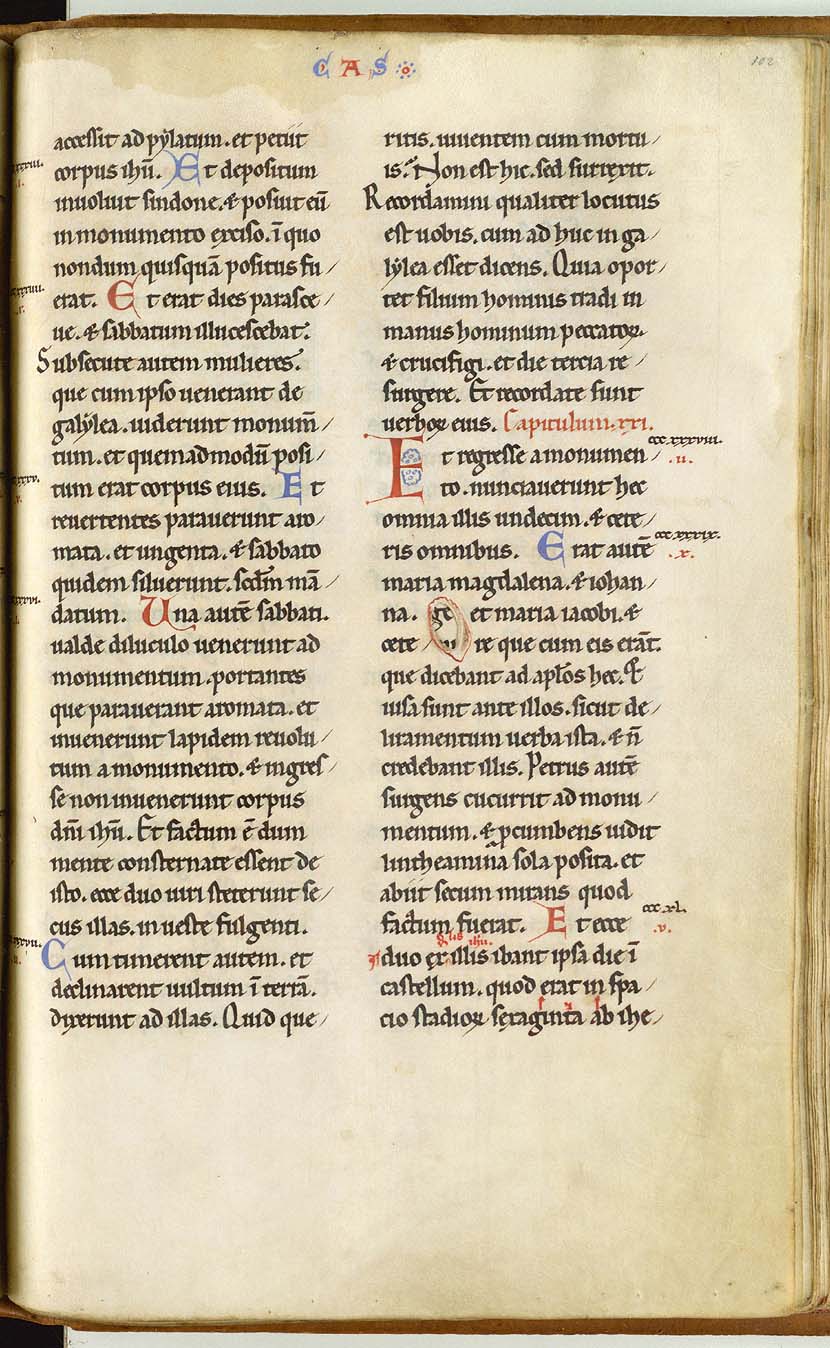 CAS
102
accessit ad pẏlatum. et petiit
corpus ihū. Et depositum
inuoluit sindone. & posuit eū
in monumento exciso. ī quo
nondum quisquā positus fu/
erat. Et erat dies parasce/
ue. & sabbatum illucescebat.
Subsecute autem mulieres.
que cum ipso uenerant de
galẏlea. uiderunt monum̄/
tum. et quemadmodū posi/
tum erat corpus eius. Et
reuertentes parauerunt aro/
mata. et ungenta. & sabbato
quidem siluerunt. scdm̄ mā/
datum. Una autē sabbati.
ualde diluculo uenerunt ad
monumentum. portantes
que parauerant aromata. et
inuenerunt lapidem reuolu/
tum a monumento. & ingres/
se non inuenerunt corpus
dn̄i ihū. Et factum ē dum
mente consternate essent de
isto. ecce duo uiri steterunt se/
cus illas. in ueste fulgenti.
Cum timerent autem. et
declinarent uultum ī terrā.
dixerunt ad illas. Quid que/
ritis. uiuentem cum mortu/
is. Non est hic. sed surrexit.
Recordamini qualiter locutus
est uobis. cum ad huc in ga/
lẏlea esset dicens. Quia opor/
tet filium hominis tradi in
manus hominum peccatoꝝ.
& crucifigi. et die tercia re/
surgere. Et recordate sunt
uerboꝝ eius. Capitulum. xxi.
Et regresse a monumen/ ccc.xxxviii.
to. nunciauerunt hec .ii.
omnia illis undecim. & cete/
ris omnibus. Erat autē ccc.xxxix.
maria magdalena. & iohan/ .x.
na. et maria iacobi. &
cete/re que cum eis erāt.
que dicebant ad apl̄os hec. Et
uisa sunt ante illos. sicut de/
liramentum uerba ista. & n̄
credebant illis. Petrus autē
surgens cucurrit ad monu/
mentum. & ꝓcumbens uidit
lintheamina sola posita. et
abiit secum mirans quod
factum fuerat. Et ecce ccc.xl.
duo ex illis ibant ipsa die ī .v.
castellum. quod erat in spa/
cio stadioꝝ sexaginta ab ihe/